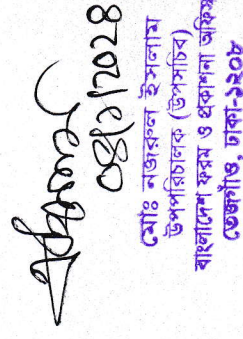 ০৪/১/২০২৪
মোঃ নজরুল ইসলাম
উপপরিচালক (উপসচিব)
বাংলাদেশ ফরম ও প্রকাশনা অফিস
তেজগাঁও ঢাকা-১২০৮